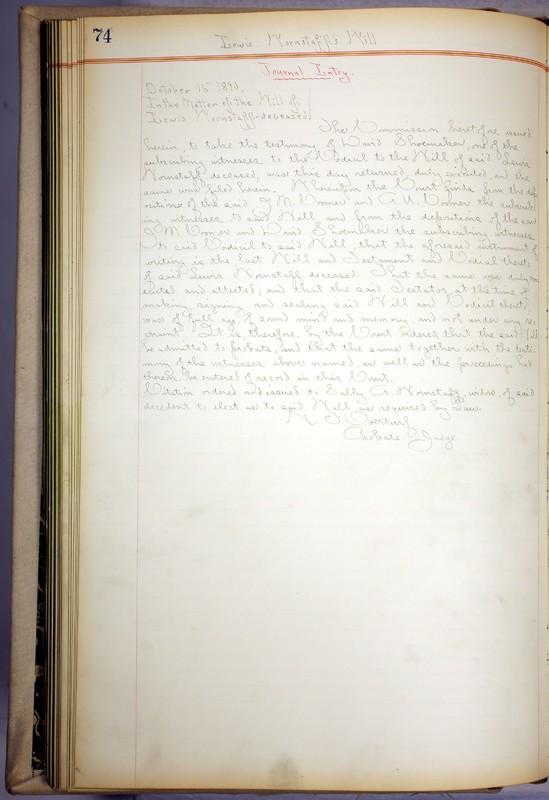 74
Lewis Wornstaff's Will
Journal Entry.
October 15 1890.
In the Matter of the Will of
Lewis Wornstaff deceased
The Commission heretofore issued
herein, to take the testimony of David Shoemaker, one of the
subscribing witnesses to the Codicil to the Will of said Lewis
Wornstaff deceased, was this day returned, duly executed, and the
same was filed herein. Whereupon the Court finds from the dep-
ositions of the said J. M. Comer and A. U. Comer the subscrib-
ing witnesses to said Will and from the depositions of the said
J. M. Comer and David Shoemaker the subscribing witnesses
to said Codicil to said Will, that the aforesaid instrument of
writing is the last Will and Testament and Codicil thereto
of said Lewis Wornstaff deceased. That the same was duly exe-
cuted and attested, and that the said Testator, at the time of
making signing and sealing said Will and Codicil thereto,
was of full age of sound mind and memory, and not under any re-
straint. It is therefore, by the Court Ordered, that the said Will
be admitted to probate, and that the same together with the testi-
mony of the witnesses above named, as well as the proceedings had
therein, be entered of record in this Court.
Citation ordered and issued to Sally A. Wornstaff, widow, of said
decedent to elect as to said Will, as required by Law.
Overturf
Probate Judge